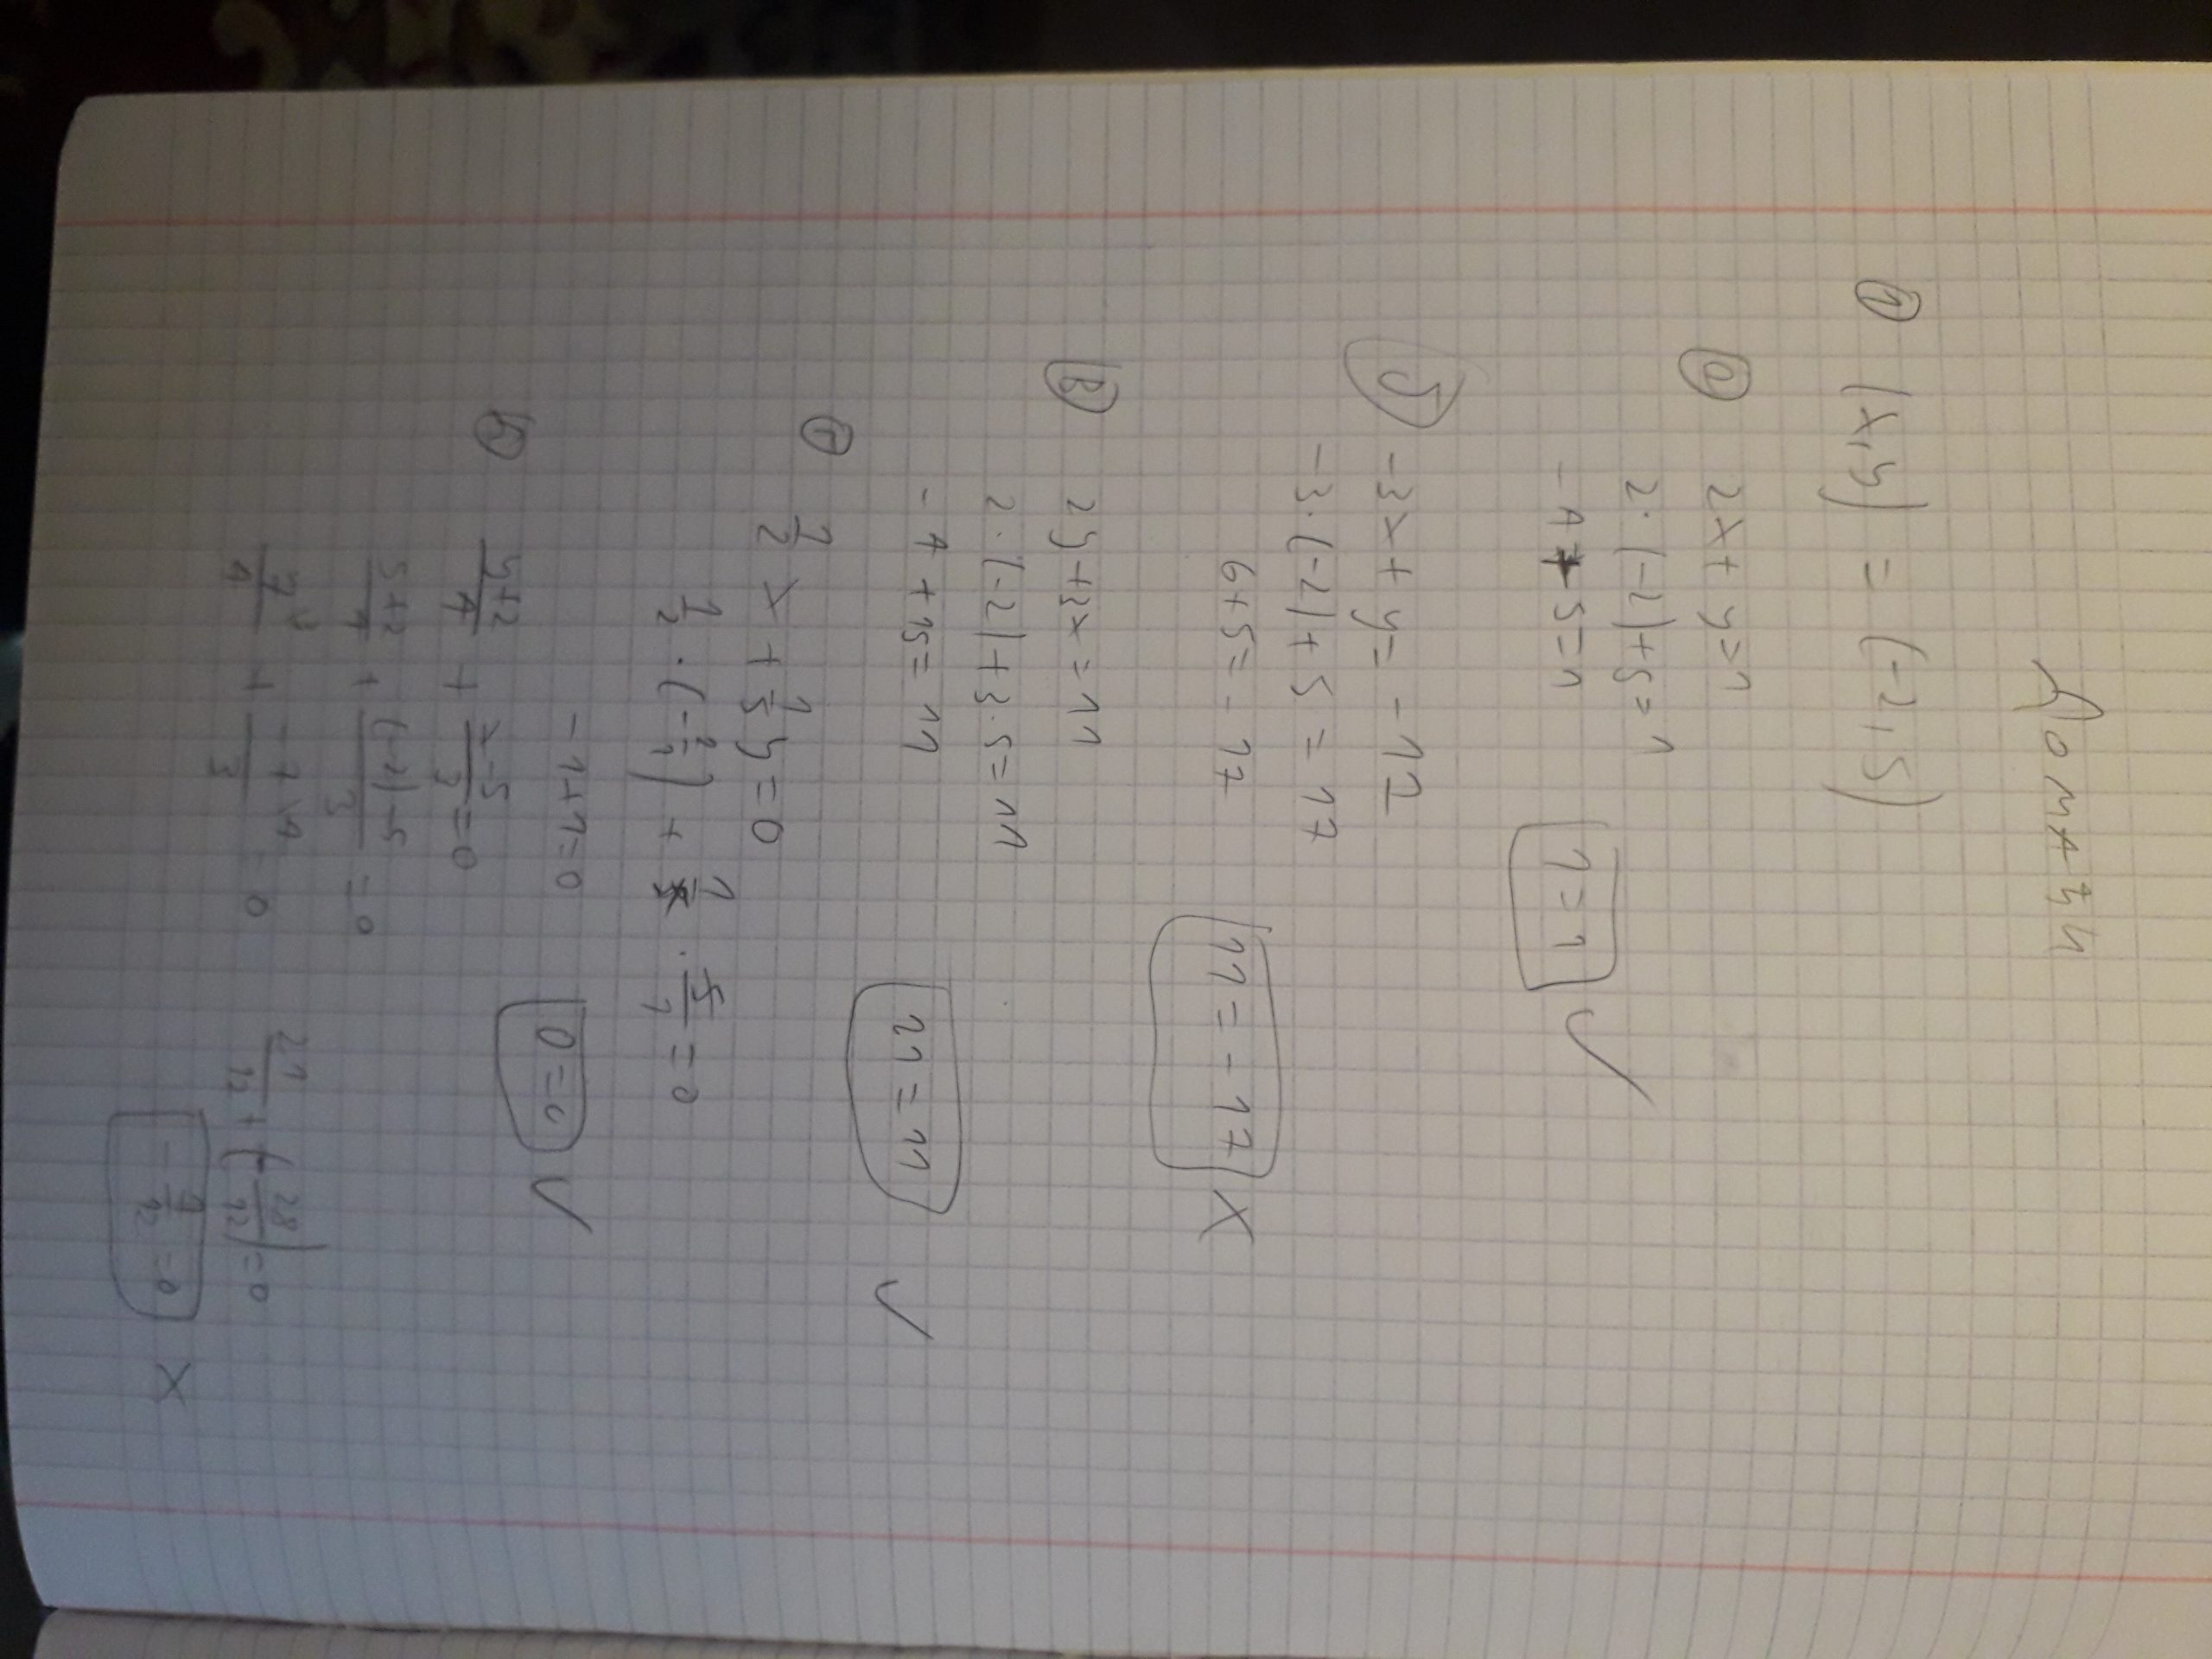 Домаћи
① (x,y) = (-2,5)
ⓐ 2x+y=1
2·(-2)+5=1
-4+5=1
1=1 ✓
-3x+y=-12
-3·(-2)+5=17
6+5=-17
11=-17 X
Ⓑ 2y+3x=11
2·(-2)+3·5=11
-4+15=11
11=11 ✓
Ⓣ 1/2 x + 1/5 y = 0
1/2 · (-2/1) + 1/5 · 5/1 = 0
-1+1=0
0=0 ✓
(y+2)/4 + (x-5)/3 = 0
(5+2)/4 + ((-2)-5)/3 = 0
7/4 + -7/3 = 0
21/12 + (-28/12) = 0
=0 X